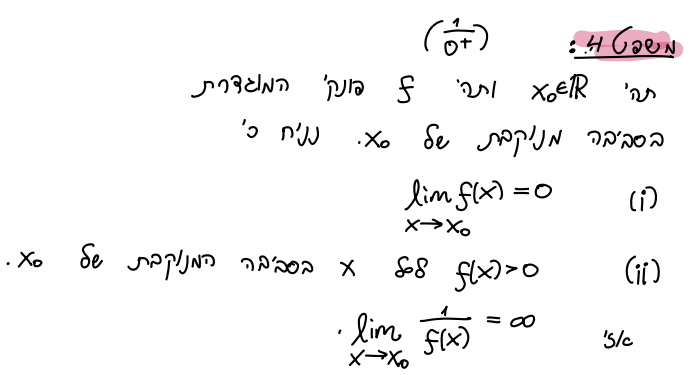 משפט 4: (1/0+)
תהי x₀∈ℝ ותהי f פונק' המוגדרת
בסביבה מנוקבת של x₀. נניח כי
(i) lim_{x→x₀} f(x) = 0
(ii) f(x)>0 לכל x בסביבה המנוקבת של x₀.
אזי lim_{x→x₀} 1/f(x) = ∞.